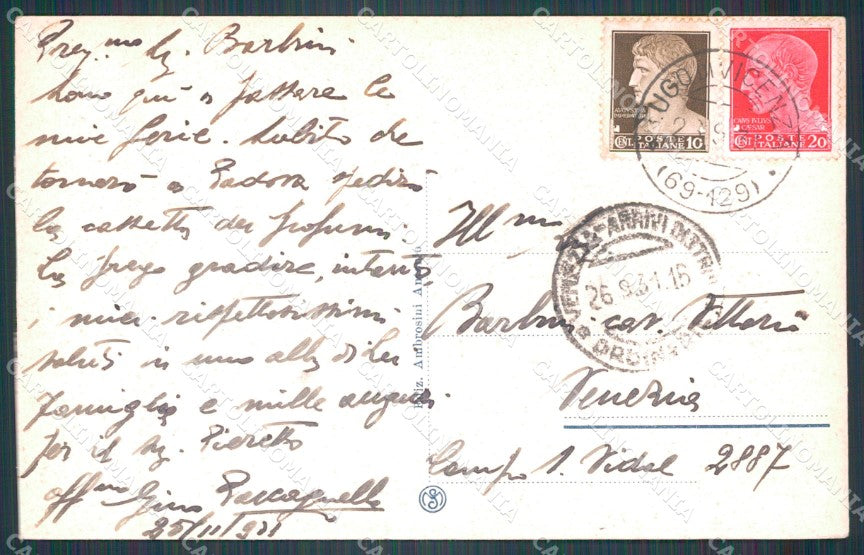 Preg.mo Sig. Barbini
Sono qui a passare le
mie ferie. Subito che
tornerò a Padova spedirò
la cassetta dei profumi.
La prego gradire, intanto,
i miei rispettosissimi
saluti in uno alla di Lei
famiglia e mille auguri
per il Sig. Pieretto
aff.mo Gino
25/11/931
Ediz. Ambrosini A
Ill mo
Barbini cav. Vittorio
Venezia
Campo S. Vidal 2887
CENT. 10
POSTE ITALIANE
CAIVS IVLIVS CAESAR
CENT. 20
POSTE ITALIANE
(69-129)
VENEZIA-ARRIVI DISTRIB
26.9.31.16
ORDIN
CARTOLINOMANIA